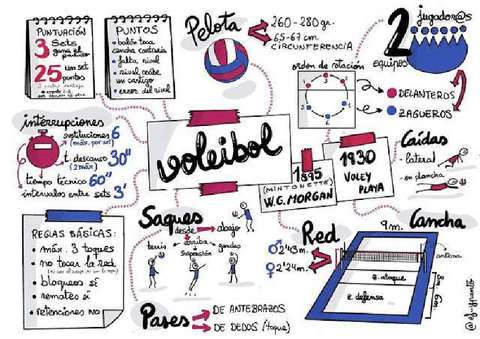 PUNTUACIÓN
3 Sets
gana el partido
25 un set
puntos
PUNTOS
balón toca
cancha contraria
falta rival
rival recibe
un castigo
error del rival
Pelota
260-280 gr.
65-67 cm
CIRCUNFERENCIA
2 jugador@s
equipos
orden de rotación
DELANTEROS
ZAGUEROS
interrupciones
sustituciones 6
(máx. por set)
t. descanso 30"
(2 máx)
tiempo técnico 60"
intervalos entre sets 3'
voleibol
1895
(MINTONETTE)
W.G. MORGAN
1930
VOLEY
PLAYA
Caídas
- lateral
- en plancha
REGLAS BÁSICAS:
• máx. 3 toques
• no tocar la red
• bloqueos sí
• remates sí
• retenciones NO
Saques
desde
abajo
arriba
tenis
suspensión
gancho
Pases
DE ANTEBRAZOS
DE DEDOS (toque)
Red
♂ 2'43 m.
♀ 2'24 m.
Cancha
9 m.
antena
z. ataque
z. defensa